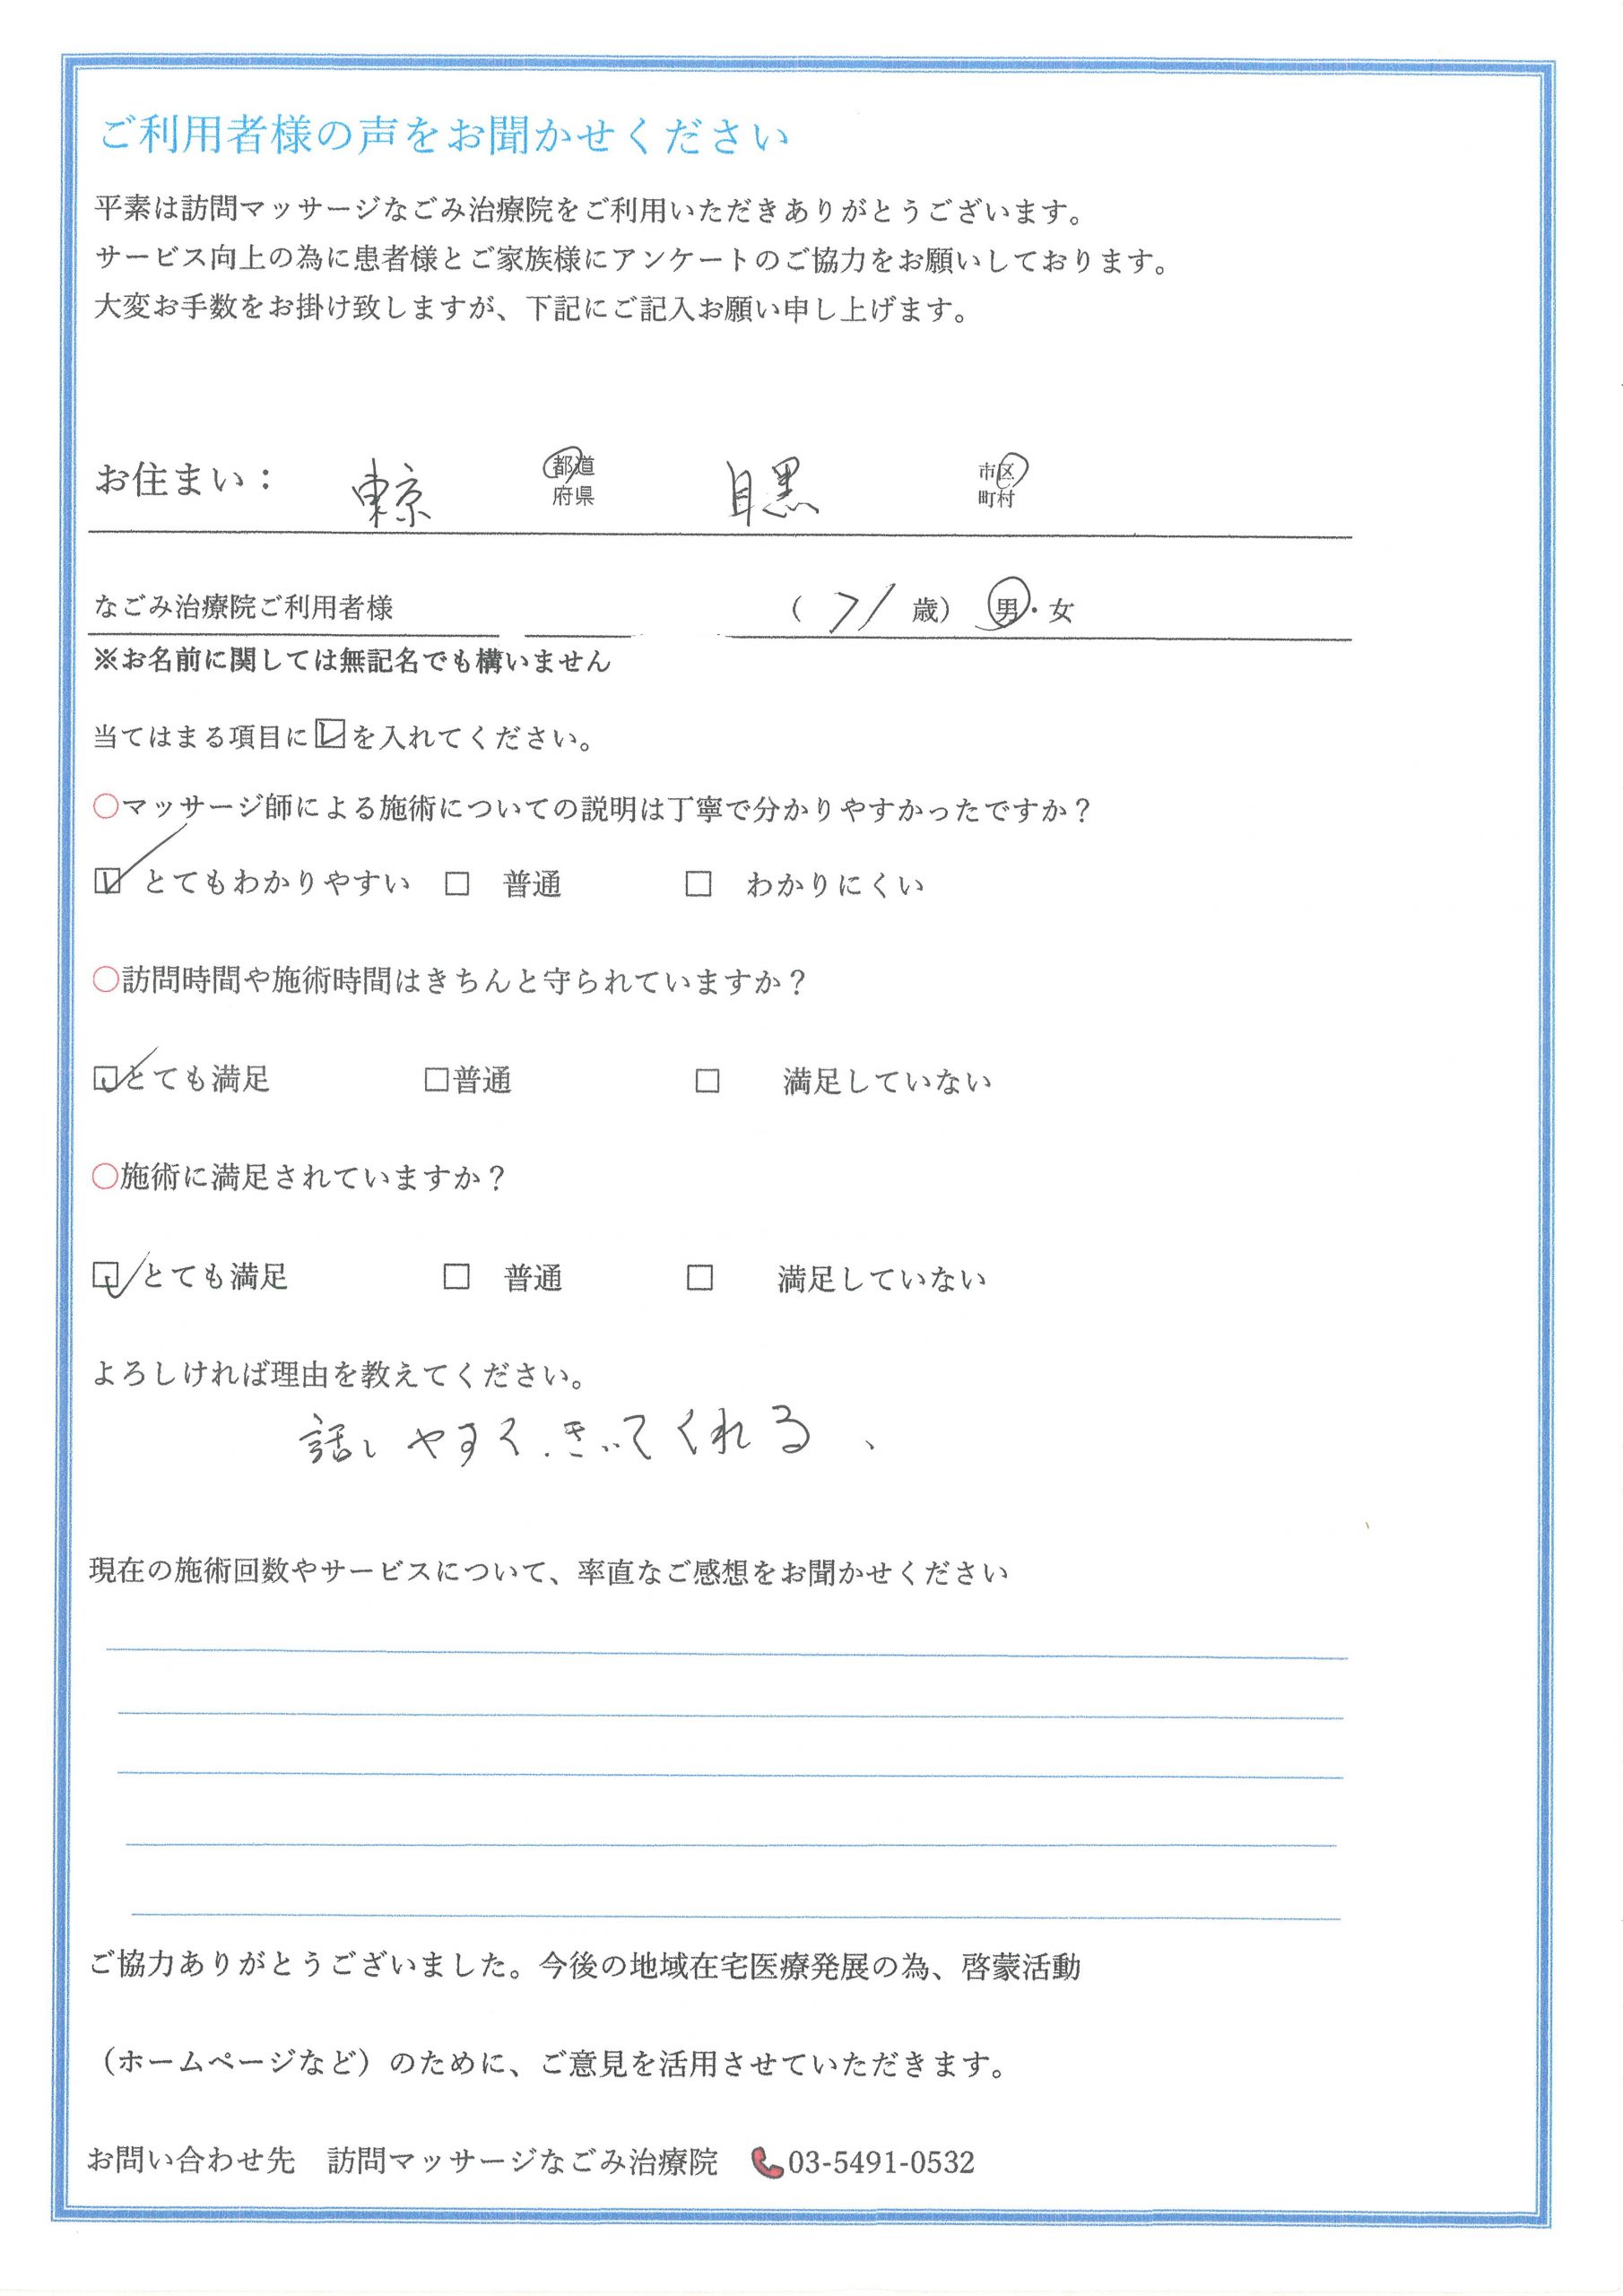 ご利用者様の声をお聞かせください
平素は訪問マッサージなごみ治療院をご利用いただきありがとうございます。
サービス向上の為に患者様とご家族様にアンケートのご協力をお願いしております。
大変お手数をお掛け致しますが、下記にご記入お願い申し上げます。
お住まい： 東京 都道府県 目黒 市区町村
なごみ治療院ご利用者様 （ 71 歳） 男・女
※お名前に関しては無記名でも構いません
当てはまる項目に☑を入れてください。
○マッサージ師による施術についての説明は丁寧で分かりやすかったですか？
☑ とてもわかりやすい □ 普通 □ わかりにくい
○訪問時間や施術時間はきちんと守られていますか？
☑とても満足 □普通 □ 満足していない
○施術に満足されていますか？
☑とても満足 □ 普通 □ 満足していない
よろしければ理由を教えてください。
話しやすく、きいてくれる、
現在の施術回数やサービスについて、率直なご感想をお聞かせください
ご協力ありがとうございました。今後の地域在宅医療発展の為、啓蒙活動
（ホームページなど）のために、ご意見を活用させていただきます。
お問い合わせ先 訪問マッサージなごみ治療院 📞03-5491-0532